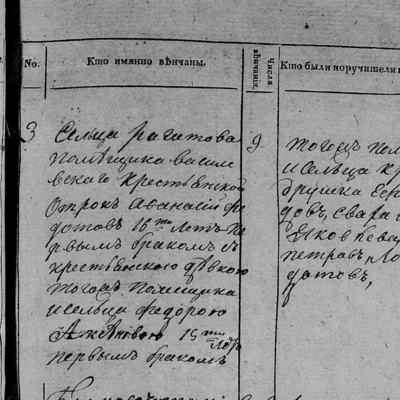 No.
Кто имянно вѣнчаны.
Числа вѣнчанія.
Кто были поручители
3
Сельца рагатова
помѣщика васил
вскаго крестьянской
отрокъ афанасій фе
дотовъ 18ти лѣтъ пе
рвымъ бракомъ съ
крестьянскою дѣвкою
тогожъ помещика
исельца федорою
15ти лѣтъ
первымъ бракомъ
9
тогожъ пом
исельца кр
дружка
довъ, сваха
Яковлева
петровъ,
дотовъ,